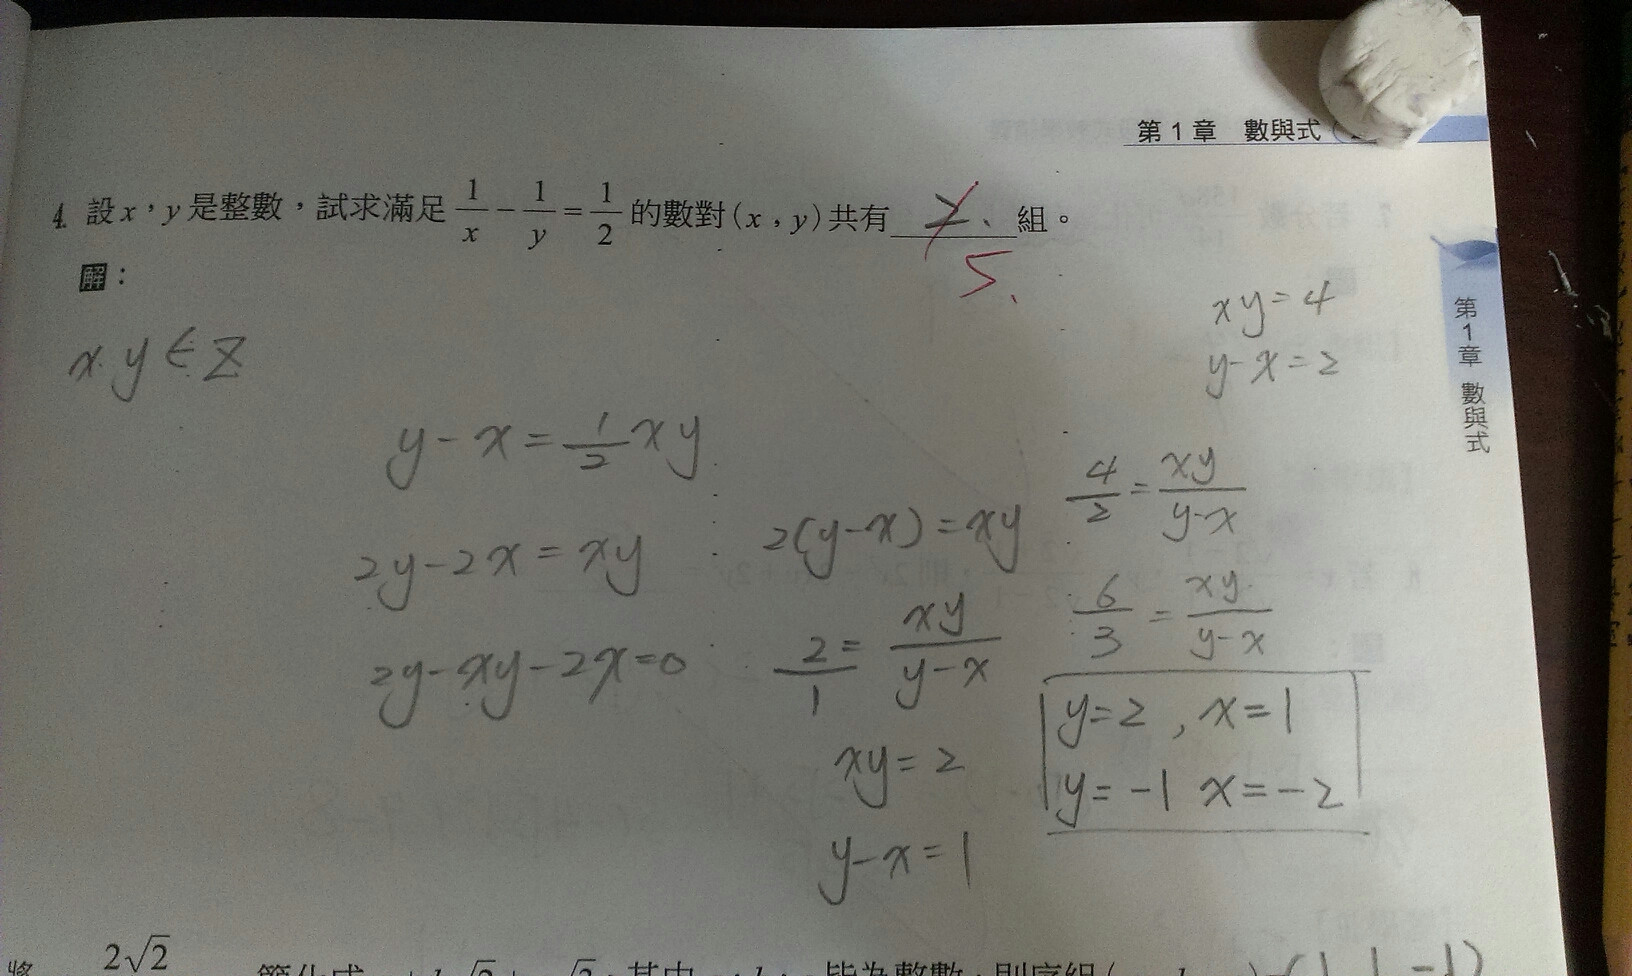 第1章 數與式
4. 設x，y是整數，試求滿足 1/x − 1/y = 1/2 的數對(x，y)共有 2. 組。
5.
解：
x.y∈Z
xy=4
y-x=2
y-x=1/2 xy
2y-2x=xy
2y-xy-2x=0
2(y-x)=xy
2/1=xy/(y-x)
xy=2
y-x=1
4/2=xy/(y-x)
6/3=xy/(y-x)
y=2, x=1
y=-1 x=-2
第1章 數與式
將 2√2